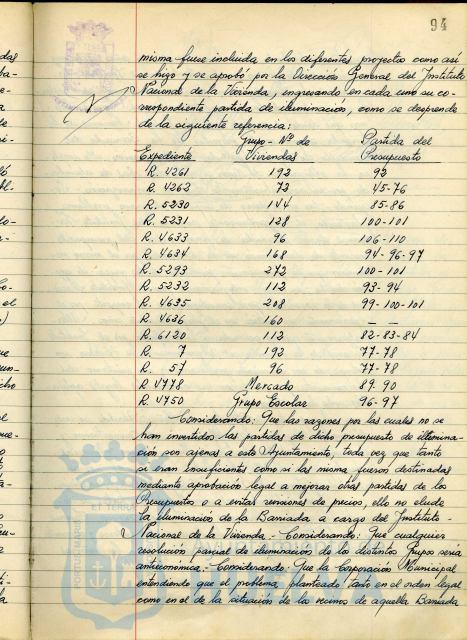 94
misma fuese incluida en los diferentes proyectos como así
se hizo y se aprobó por la Dirección General del Instituto
Nacional de la Vivienda, ingresando en cada uno su co-
rrespondiente partida de iluminación, como se desprende
de la siguiente referencia:
Grupo - Nº de Partida del
Expediente Viviendas Presupuesto
R. 4261 192 92
R. 4262 72 45-76
R. 5230 144 85-86
R. 5231 128 100-101
R. 4633 96 106-110
R. 4634 168 94-96-97
R. 5293 272 100-101
R. 5232 112 93-94
R. 4635 208 99-100-101
R. 4636 160 — —
R. 6120 112 82-83-84
R. 7 192 77-78
R. 57 96 77-78
R. 4778 Mercado 89.90
R. 4750 Grupo Escolar 96-97
Considerando: Que las razones por las cuales no se
han invertidos las partidas de dicho presupuesto de ilumina-
ción son ajenas a este Ayuntamiento, toda vez que tanto
si eran insuficientes como si las misma fueron destinadas
mediante aprobación legal a mejorar otras partidas de los
Presupuestos o a evitar revisiones de precios, ello no elude
la iluminación de la Barriada a cargo del Instituto-
Nacional de la Vivienda.- Considerando: Que cualquier
resolución parcial de iluminación de los distintos Grupos sería
antieconómica.- Considerando: Que la Corporación Municipal
entendiendo que el problema planteado tanto en el orden legal
como en el de la situación de los vecinos de aquella Barriada